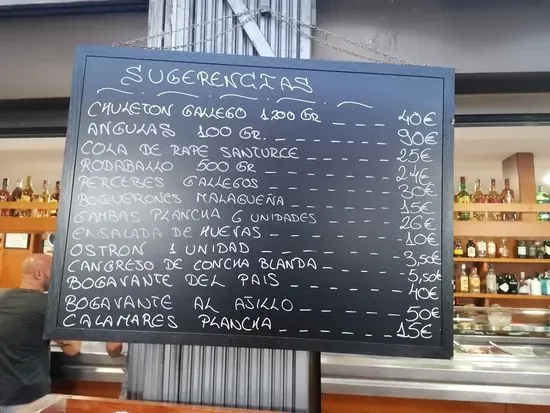 SUGERENCIAS
CHULETON GALLEGO 1200 GR 40€
ANGULAS 100 GR. 90€
COLA DE RAPE SANTURCE 25€
RODABALLO 500 GR 24€
PERCEBES GALLEGOS 30€
BOQUERONES MALAGUEÑA 15€
GAMBAS PLANCHA 6 UNIDADES 26€
ENSALADA DE HUEVAS 10€
OSTRON 1 UNIDAD 3,50€
CANGRESO DE CONCHA BLANDA 5,50€
BOGAVANTE DEL PAIS 40€
BOGAVANTE AL AJILLO 50€
CALAMARES PLANCHA 15€